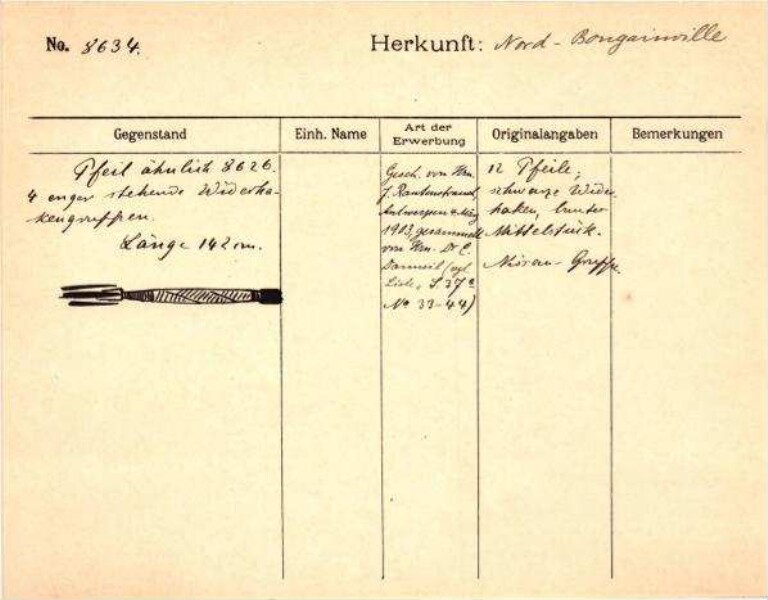 No. 8634.
Herkunft: Nord-Bougainville
Gegenstand
Einh. Name
Art der Erwerbung
Originalangaben
Bemerkungen
Pfeil ähnlich 8626.
4 enger stehende Widerha-
kengruppen.
Länge 142 cm.
Gesch. von Hrn.
J. Rautenstrauch,
Antwerpen 4. März
1903, gesammelt
von Hrn. Dr. E.
(vgl.
Liste, S. 37
No 33-44)
12 Pfeile;
schwarze Wider-
haken, buntes
Mittelstück.